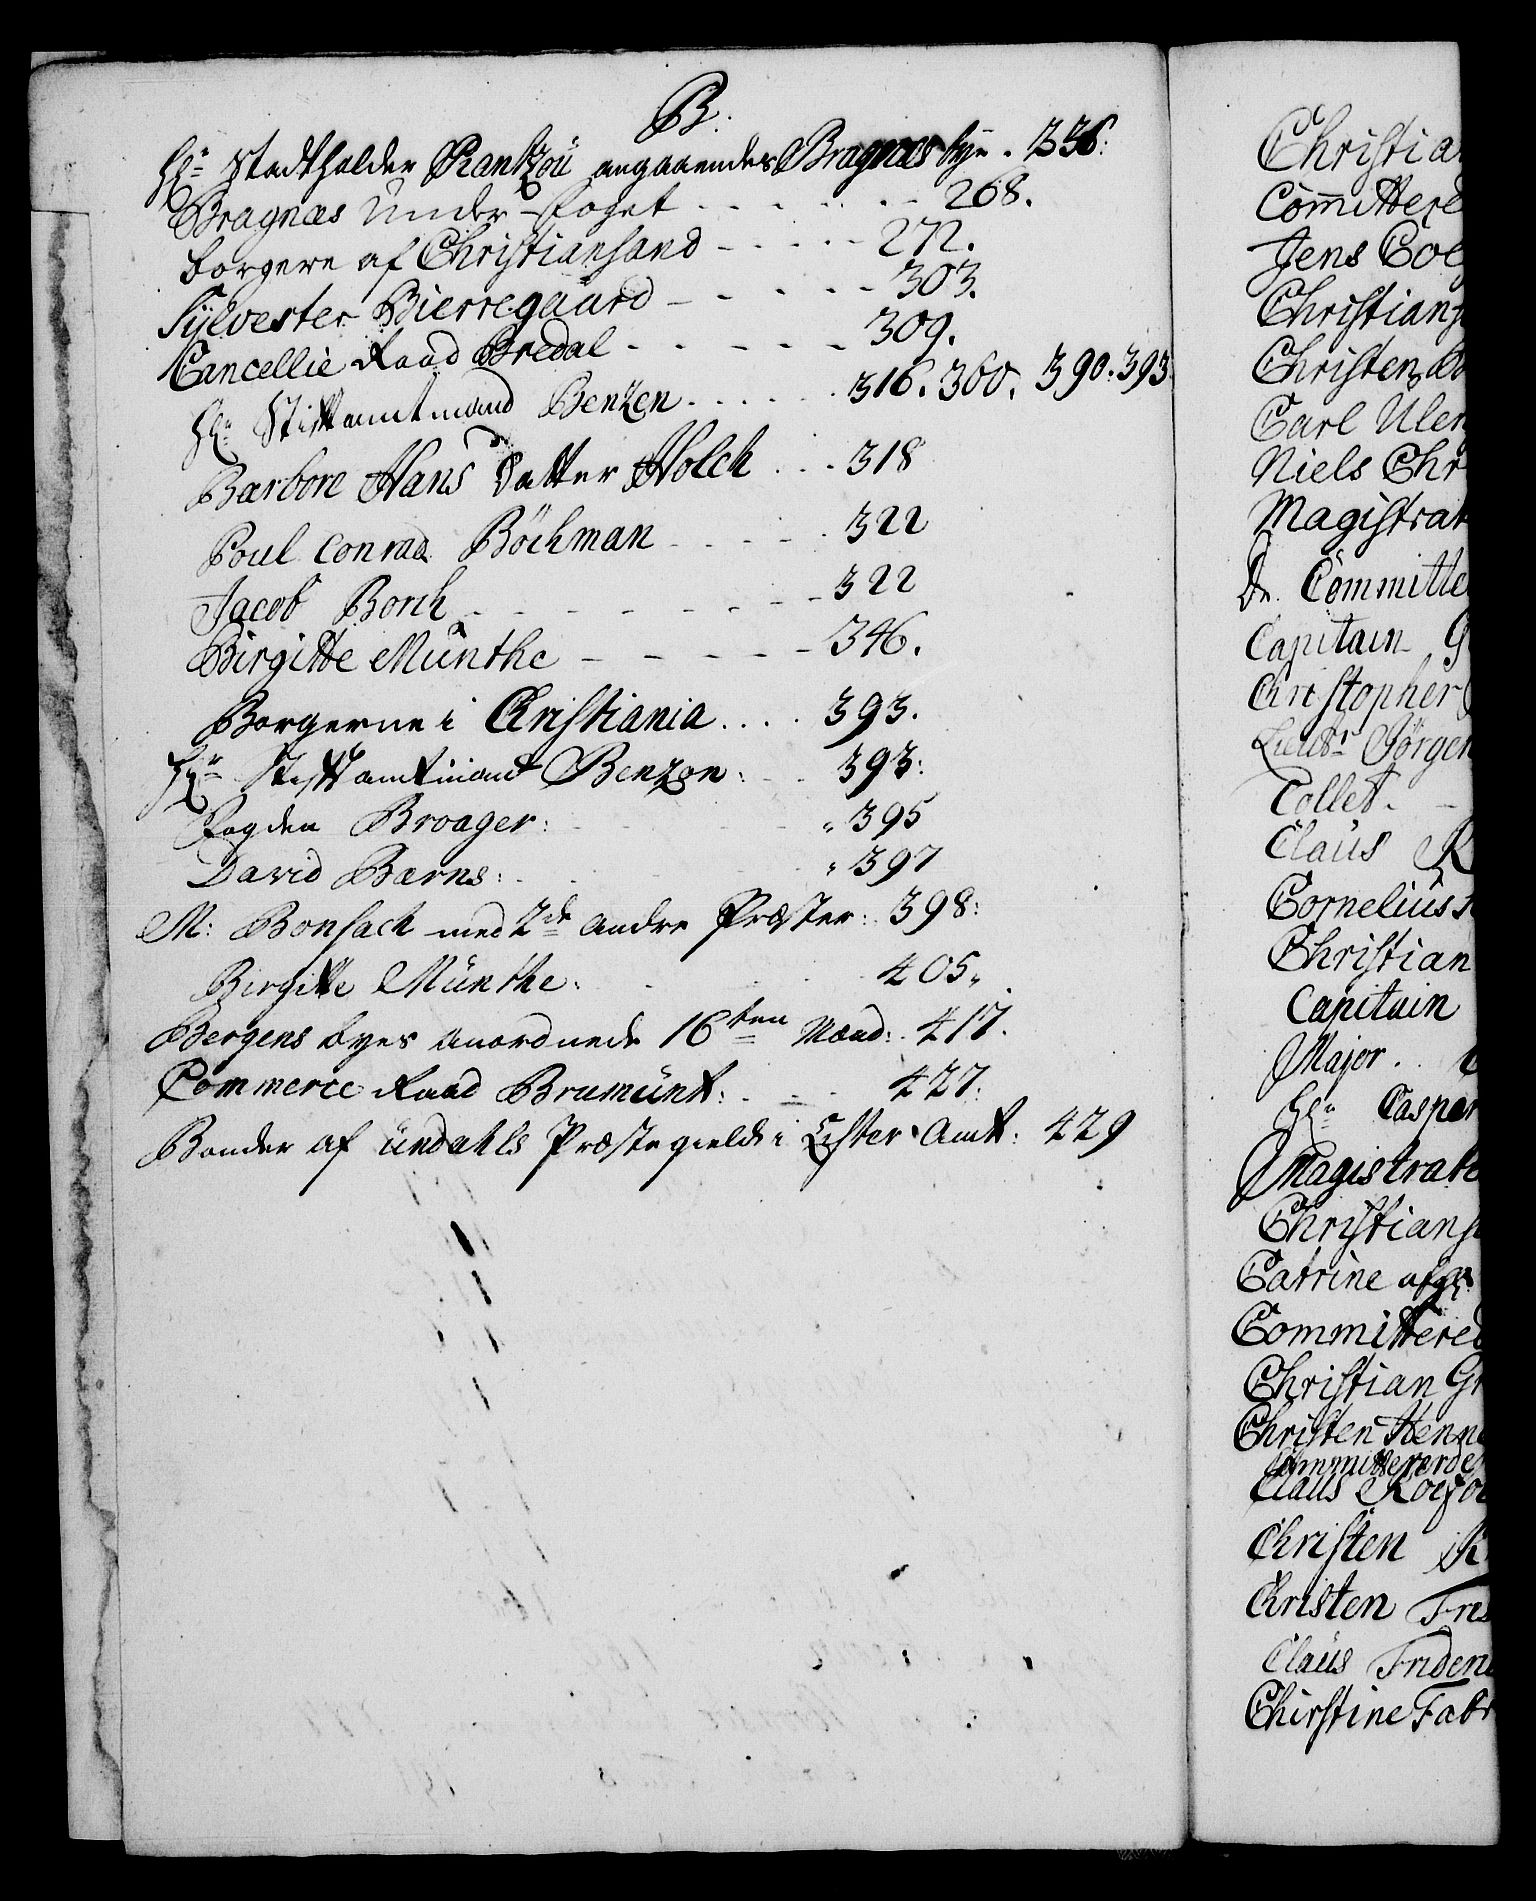 B.
Hr. Stadtholder Rantzou angaaendes Bragnæs bye. 236:
Bragnæs Under-foget - - - - - 268.
borgere af Christiansand - - - - - 272.
Sÿlvester Bierregaard - - - - - 303.
Cancellie Raad Bredal - - - - - 309.
Hr. Stiftamtmand Benzen . . . . . . 316. 360. 390. 393
Barbore Hans Datter Holch . . . 318
Poul Conrad Böchman - - - - . 322
Jacob Borch - - - - - - - - 322
Birgitte Münthe - - - - - 346.
Borgerne i Christiania . . . . 393.
Hr. Stiftamtmand Benzon: . . 393:
Fogden Broager: 395
David Bærns: 397
M: Bonsach med 2de andre Præster: 398:
Birgitte Münthe. 405.
Bergens byes anordnede 16ten Mænd: 417.
Commerce Raad Brumünt: . . . 427.
Bønder af Undahls Præstegield i Lister Amt: 429
Christia
Committered
Jens Coe
Christians
Christen
Carl Uler
Niels Chr
Magistrat
De Committe
Capitain
Christopher
Lieutn Jörgen
Collet. -
Claus K
Cornelius
Christian
Capitain
Major.
Hr. Casper
Magistrat
Christians
Catrine afg
Committered
Christian Gr
Christen Henn
Committerede
Claus Koefo
Christen K
Christen Fre
Claus Friden
Chirstine Fabr